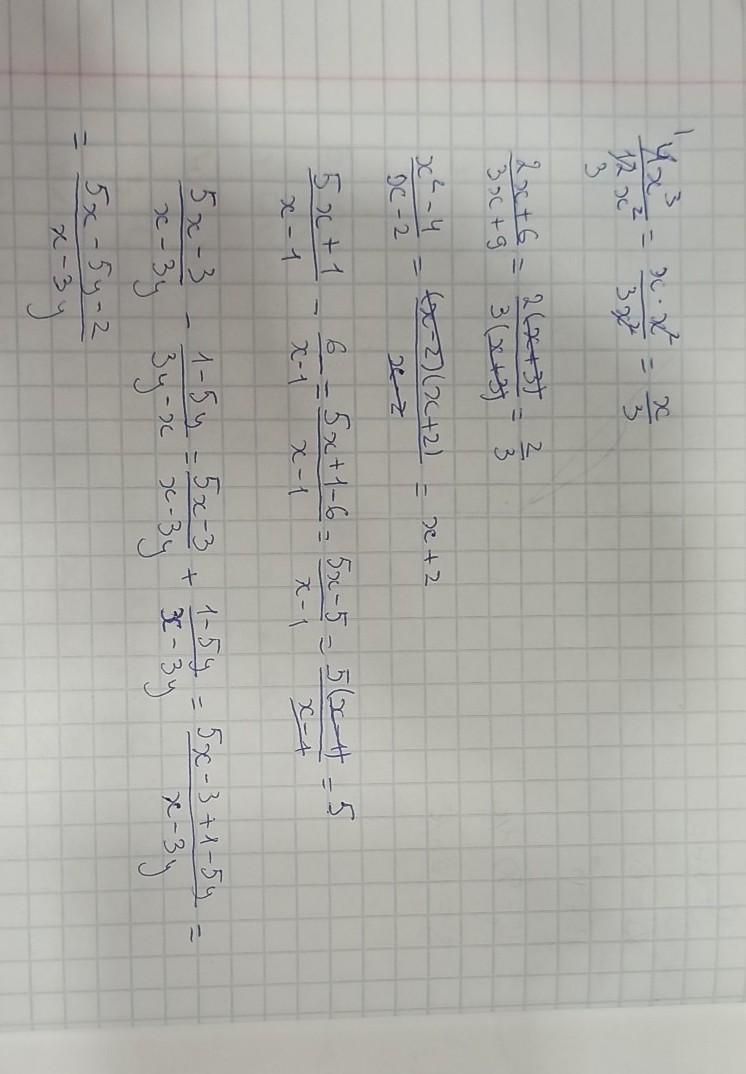 \frac{4x^3}{12x^2} = \frac{x \cdot x^2}{3x^2} = \frac{x}{3}
\frac{2x+6}{3x+9} = \frac{2(x+3)}{3(x+3)} = \frac{2}{3}
\frac{x^2-4}{x-2} = \frac{(x-2)(x+2)}{x-2} = x+2
\frac{5x+1}{x-1} - \frac{6}{x-1} = \frac{5x+1-6}{x-1} = \frac{5x-5}{x-1} = \frac{5(x-1)}{x-1} = 5
\frac{5x-3}{x-3y} - \frac{1-5y}{3y-x} = \frac{5x-3}{x-3y} + \frac{1-5y}{x-3y} = \frac{5x-3+1-5y}{x-3y} =
= \frac{5x-5y-2}{x-3y}